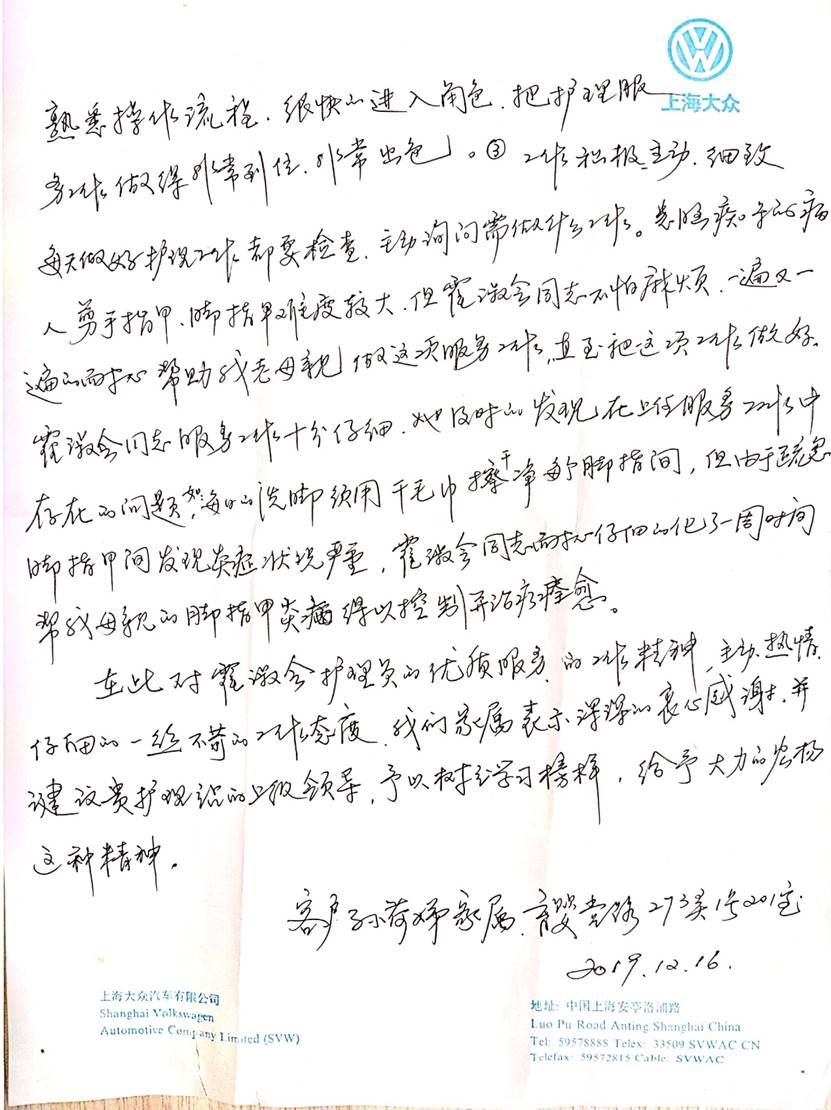 上海大众
熟悉操作流程，很快的进入角色，把护理服
务工作做得非常到位，非常出色」。③ 工作积极主动，细致
每天做好护理工作都要检查，主动询问需做什么工作。患脑痴呆病
人剪手指甲、脚指甲难度较大，但霍淑会同志不怕麻烦，一遍又一
遍的耐心帮助我老母亲做这项服务工作，直至把这项工作做好。
霍淑会同志服务工作十分仔细，她及时的发现在上任服务工作中
存在的问题，如：每日的洗脚须用干毛巾擦干净每个脚指间，但由于疏忽
脚指甲间发现炎症状况严重，霍淑会同志耐心仔细的化了一周时间
帮我母亲的脚指甲炎症得以控制并治疗痊愈。
在此对霍淑会护理员的优质服务的工作精神，主动热情
仔细的一丝不苟的工作态度，我们家属表示深深的衷心感谢，并
建议贵护理站的上级领导，予以树立学习榜样，给予大力的宏扬
这种精神。
客户 孙荷娣家属，育婴堂路273弄1号201室
2019.12.16.
上海大众汽车有限公司
Shanghai Volkswagen
Automotive Company Limited (SVW)
地址: 中国上海安亭洛浦路
Luo Pu Road Anting Shanghai China
Tel: 59578888 Telex: 33509 SVWAC CN
Telefax: 59572815 Cable: SVWAC